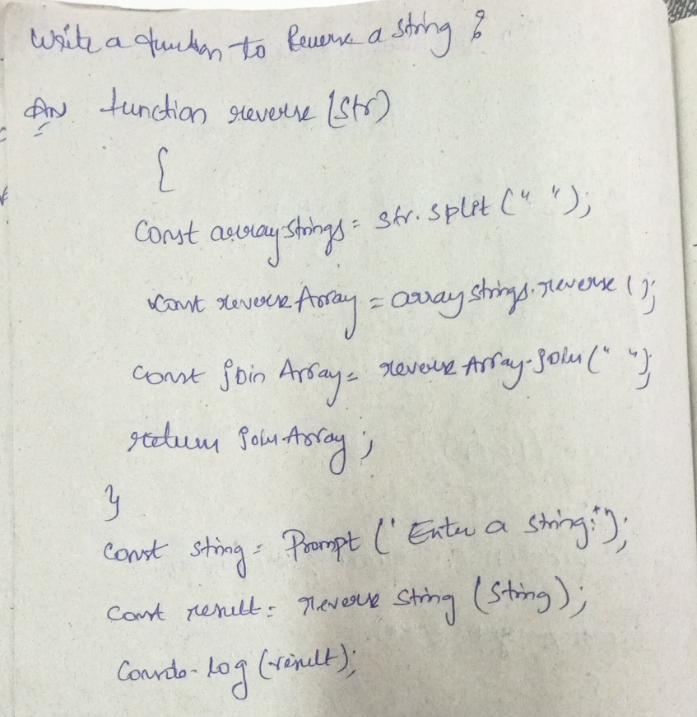 Write a function to Reverse a string ?
Ans function reverse (Str)
{
Const arraystrings = str.split (" ");
const reverse Array = arraystrings.reverse ();
const join Array = reverse Array.join (" ");
return join Array ;
}
const string = Prompt (' Enter a string:');
const result = reverse string (string);
Console.log (result);